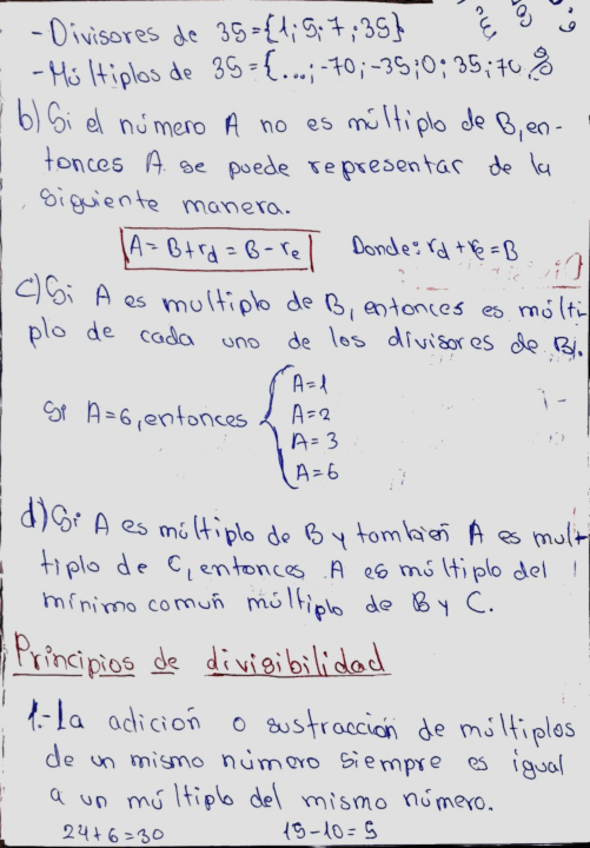 - Divisores de 35={1;5;7;35}
- Múltiplos de 35={...;-70;-35;0;35;70
b) Si el número A no es múltiplo de B, en-
tonces A se puede representar de la
siguiente manera.
A= B+rd = B-re Donde: rd+re=B
c) Si A es multiplo de B, entonces es múlti-
plo de cada uno de los divisores de B.
Si A=6, entonces
A=1
A=2
A=3
A=6
d) Si A es múltiplo de B y tambien A es mul-
tiplo de C, entonces A es múltiplo del
mínimo común múltiplo de B y C.
Principios de divisibilidad
1.- La adición o sustracción de múltiplos
de un mismo número siempre es igual
a un múltiplo del mismo número.
24+6=30 15-10=5